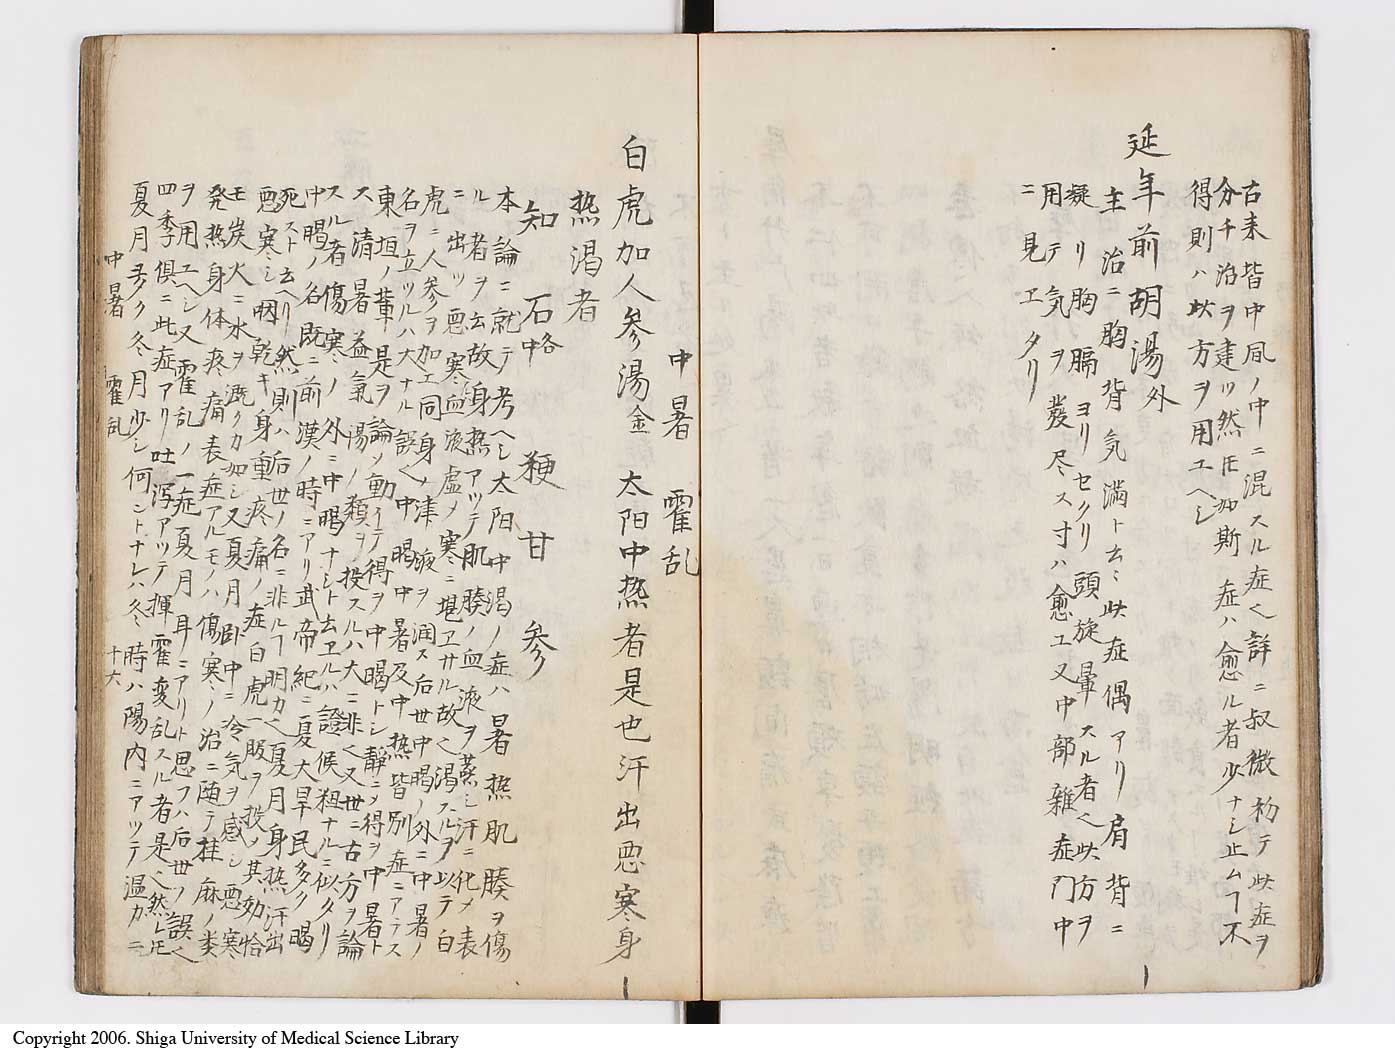 古来皆中風ノ中ニ混スル症〱詳ニ叔微初テ此症ヲ
分千治ヲ建ツ然𪜈如斯症ハ愈ル者少ナシ止ムヿ不
得則ハ此方ヲ用エヘシ
延年前胡湯外
主治ニ胸背気満ト云〻此症偶アリ肩背ニ
凝リ胸膈ヨリセクリ頭旋暈スル者〱此方ヲ
用テ気ヲ發尽ス寸ハ愈エ又中部雜症門中
ニ見エタリ
中暑 霍乱
白虎加人参湯金 太阳中热者是也汗出悪寒身
热渇者
知 石各中 粳 甘 参
本論ニ就テ考ヘシ太阳中渇ノ症ハ暑热肌腠ヲ傷
ル者ヲ云故身热アツテ肌腠ノ血液ヲ蒸シ汗ニ化メ表
ニ出ツ悪寒血液虚メ寒ニ堪エサル故〱渇スルヲ以テ白
虎ニ人参ヲ加エ同身ノ津液ヲ润ス后世中暍ノ外ニ中暑ノ
名ヲ立ツルハ大ナル誤〱中暍中暑及中热皆別症ニアテス
東垣ノ輩是ヲ論ノ動イテ得ヲ中暍トシ靜ニメ得ヲ中暑ト
ス清暑益氣湯ノ類ヲ投スルハ大ニ非〱又世ニ古方ヲ論
スル者傷寒ノ外ニ中暍ナシト云エルハ證候粗ナルニ似タリ
中暍ノ名既ニ前漢ノ時ニアリ武帝紀ニ夏大旱民多ク暍
死スト云ヘリ然則ハ后世ノ名ニ非ルヿ明カ〱夏月身热汗出
悪寒シ咽乾キ身重疼痛ノ症白虎一服ヲ投ノ其効恰
モ炭火ニ水ヲ漑クカ如シ又夏月卧中ニ冷気ヲ感シ悪寒
発熱身体疼痛表症アルモノハ傷寒ノ治ニ随テ桂麻ノ类
ヲ用エヘシ又霍乱ノ一症夏月耳ニアリト思フハ后世ノ誤〱
四季倶ニ此症アリ吐瀉アツテ揮霍変乱スル者是〱然レ𪜈
夏月多ク冬月少シ何ントナレハ冬時ハ陽内ニアツテ温カニ
中暑 霍乱 十六
Copyright 2006. Shiga University of Medical Science Library